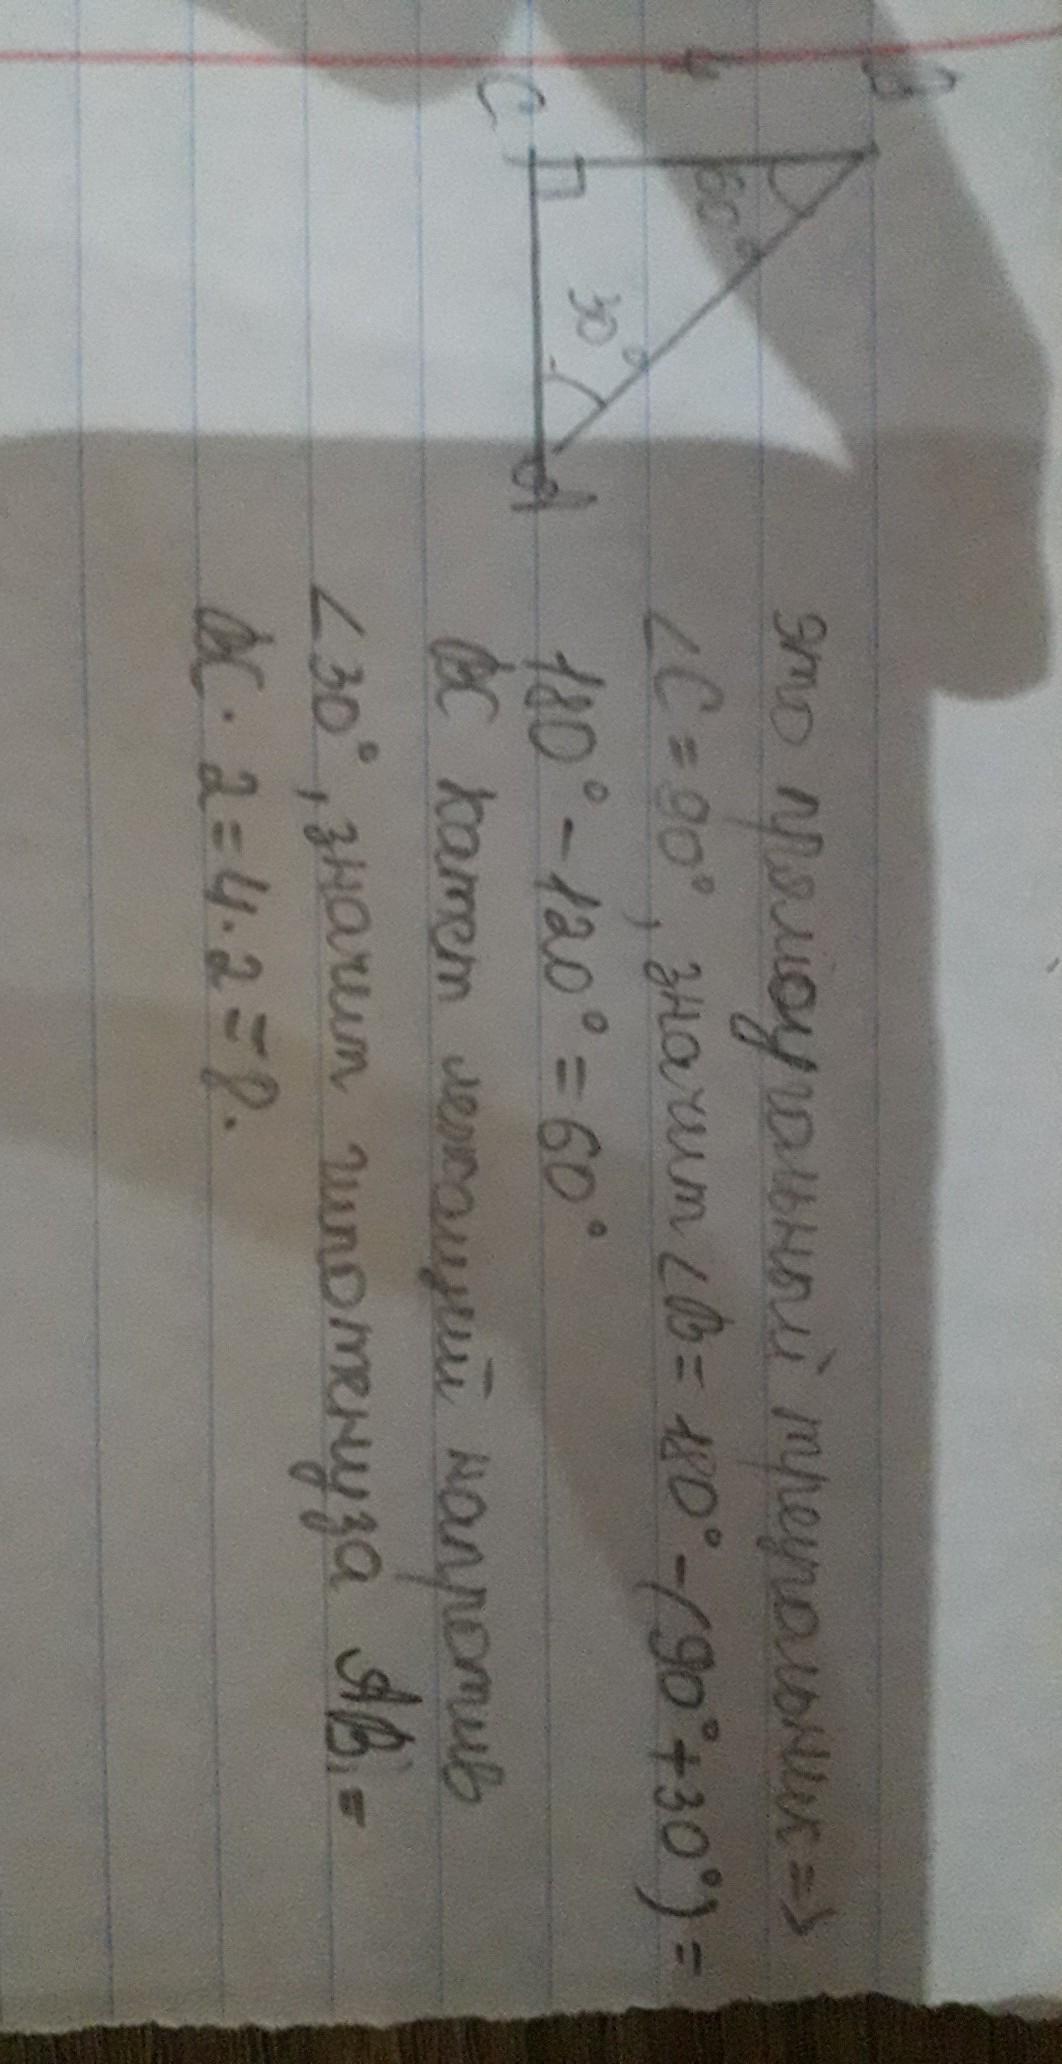 B
4
60°
30°
C
A
это прямоугольный треугольник =>
∠C = 90°, значит ∠B = 180° - (90° + 30°) =
180° - 120° = 60°
BC катет лежащий напротив
∠30°, значит гипотенуза AB =
BC · 2 = 4 · 2 = 8.